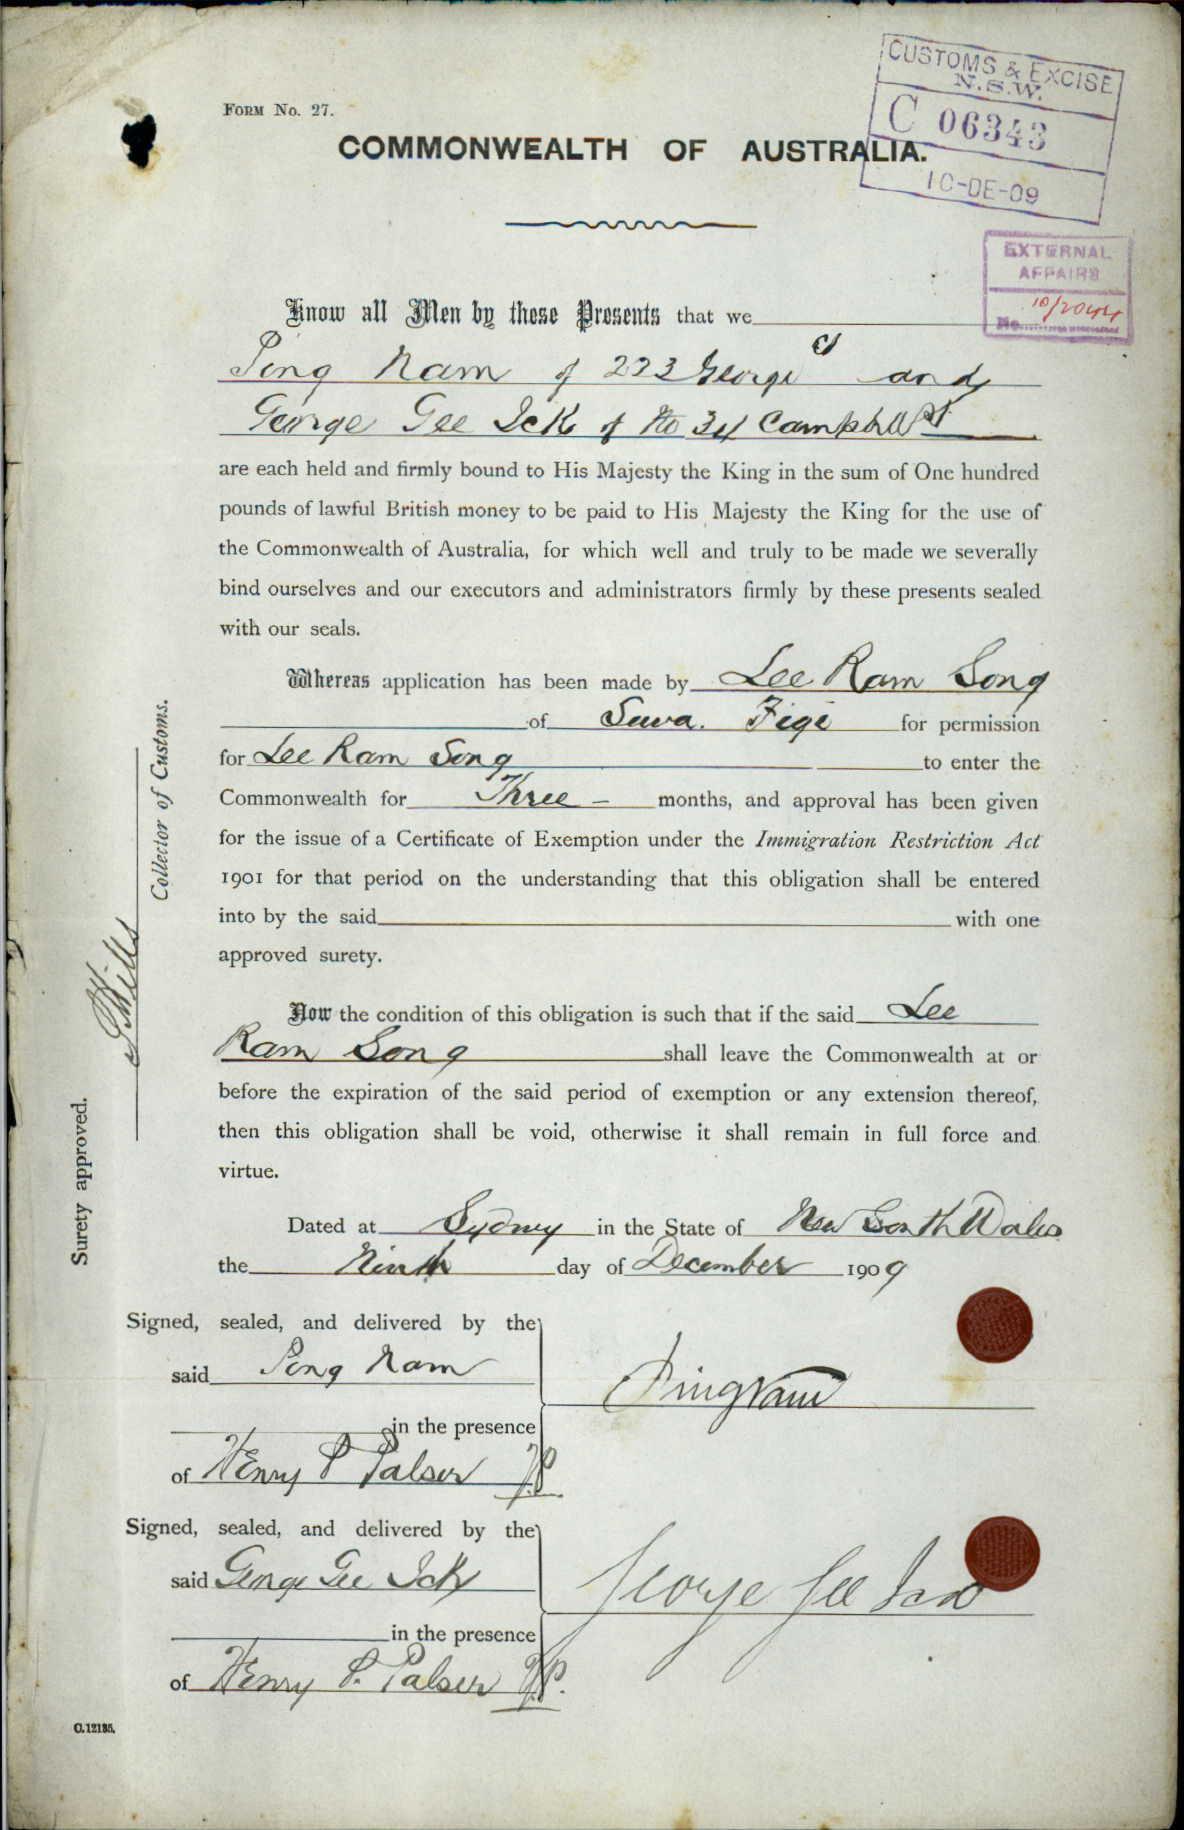 CUSTOMS & EXCISE
N.S.W.
C 06343
10-DE-09
FORM No. 27.
COMMONWEALTH OF AUSTRALIA.
EXTERNAL
AFFAIRS
No. 10/2044
Know all Men by these Presents that we
Ping Nam of 223 George St and
George Gee Ick of No 34 Campbell St
are each held and firmly bound to His Majesty the King in the sum of One hundred
pounds of lawful British money to be paid to His Majesty the King for the use of
the Commonwealth of Australia, for which well and truly to be made we severally
bind ourselves and our executors and administrators firmly by these presents sealed
with our seals.
Whereas application has been made by Lee Ram Song
of Suva. Figi for permission
for Lee Ram Song to enter the
Commonwealth for Three - months, and approval has been given
for the issue of a Certificate of Exemption under the Immigration Restriction Act
1901 for that period on the understanding that this obligation shall be entered
into by the said with one
approved surety.
Now the condition of this obligation is such that if the said Lee
Ram Song shall leave the Commonwealth at or
before the expiration of the said period of exemption or any extension thereof,
then this obligation shall be void, otherwise it shall remain in full force and
virtue.
Dated at Sydney in the State of New South Wales
the Ninth day of December 1909
Surety approved.
Mills
Collector of Customs.
Signed, sealed, and delivered by the
said Ping Nam
Ping Nam
in the presence
of Henry P Palser J.P.
Signed, sealed, and delivered by the
said George Gee Ick
George Gee Ick
in the presence
of Henry P. Palser J.P.
C.12185.